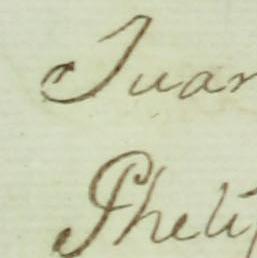 Juan
Phelip